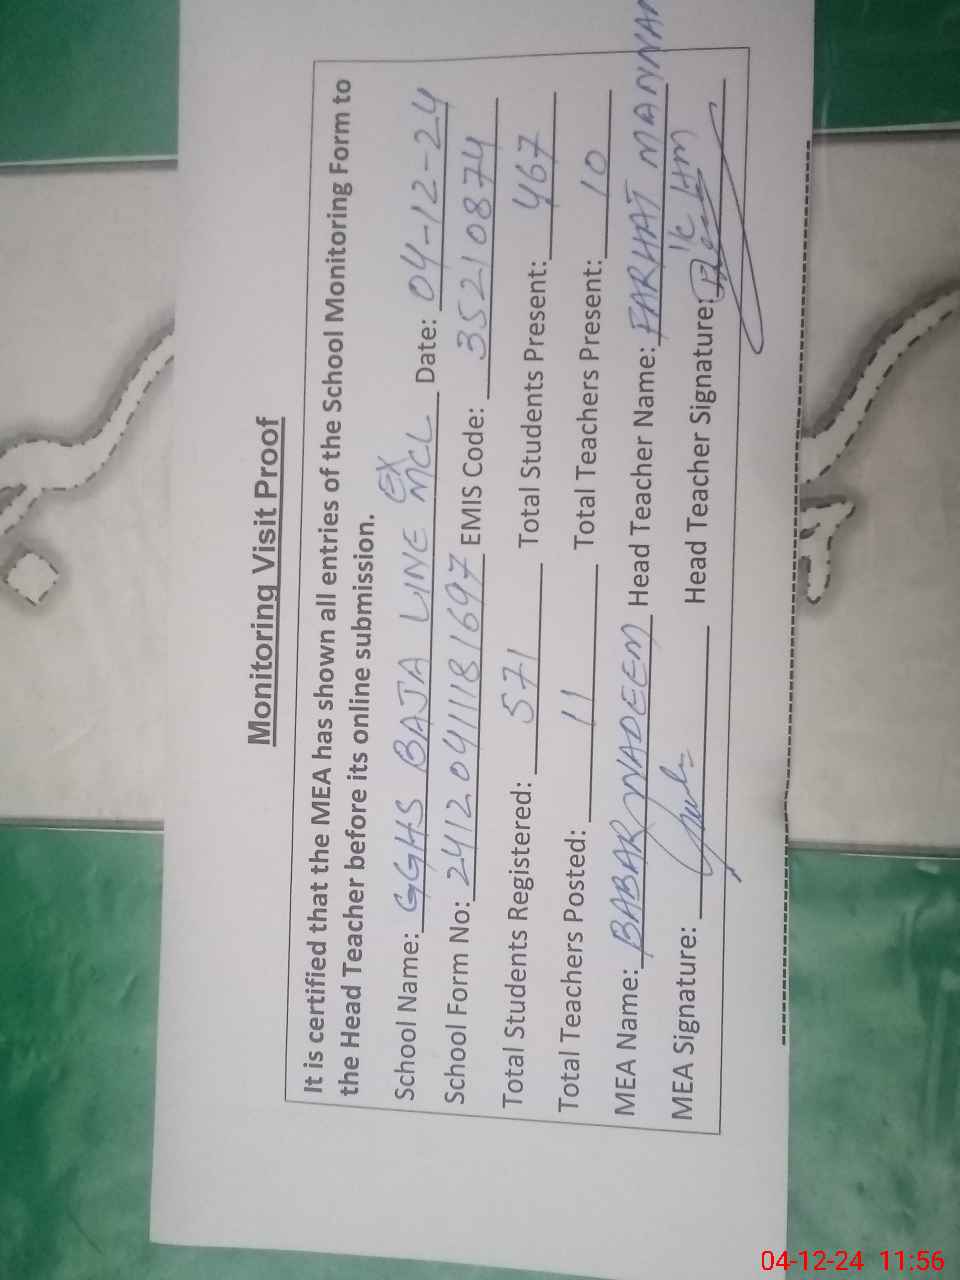 Monitoring Visit Proof
It is certified that the MEA has shown all entries of the School Monitoring Form to
the Head Teacher before its online submission.
School Name: GGHS BAJA LINE EX MCL Date: 04-12-24
School Form No: 2412041118 1697 EMIS Code: 35210874
Total Students Registered: 571 Total Students Present: 467
Total Teachers Posted: 11 Total Teachers Present: 10
MEA Name: BABAR NADEEM Head Teacher Name: FARHAT MANNAN
MEA Signature: Head Teacher Signature: I/C HM
04-12-24 11:56